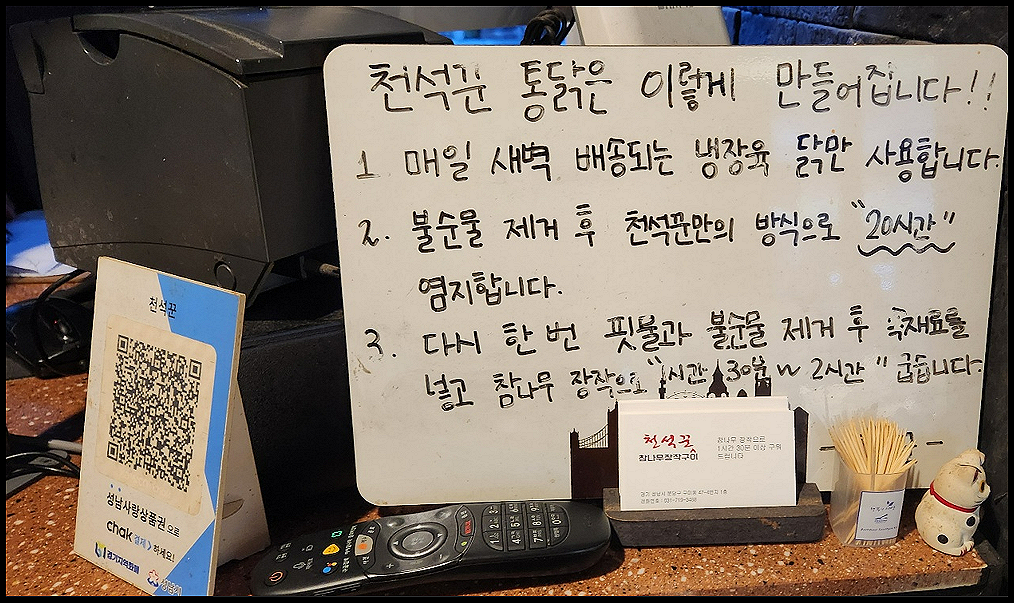 천석꾼 통닭은 이렇게 만들어집니다!!
1. 매일 새벽 배송되는 냉장육 닭만 사용합니다.
2. 불순물 제거 후 천석꾼만의 방식으로 "20시간"
염지합니다.
3. 다시 한번 핏물과 불순물 제거 후 속재료를
넣고 참나무 장작으로 "1시간 30분 ~ 2시간" 굽습니다.
천석꾼
성남사랑상품권으로
chak 결제 하세요!
경기지역화폐
성남시
천석꾼
참나무장작구이
참나무 장작으로
1시간 30분 이상 구워
드립니다